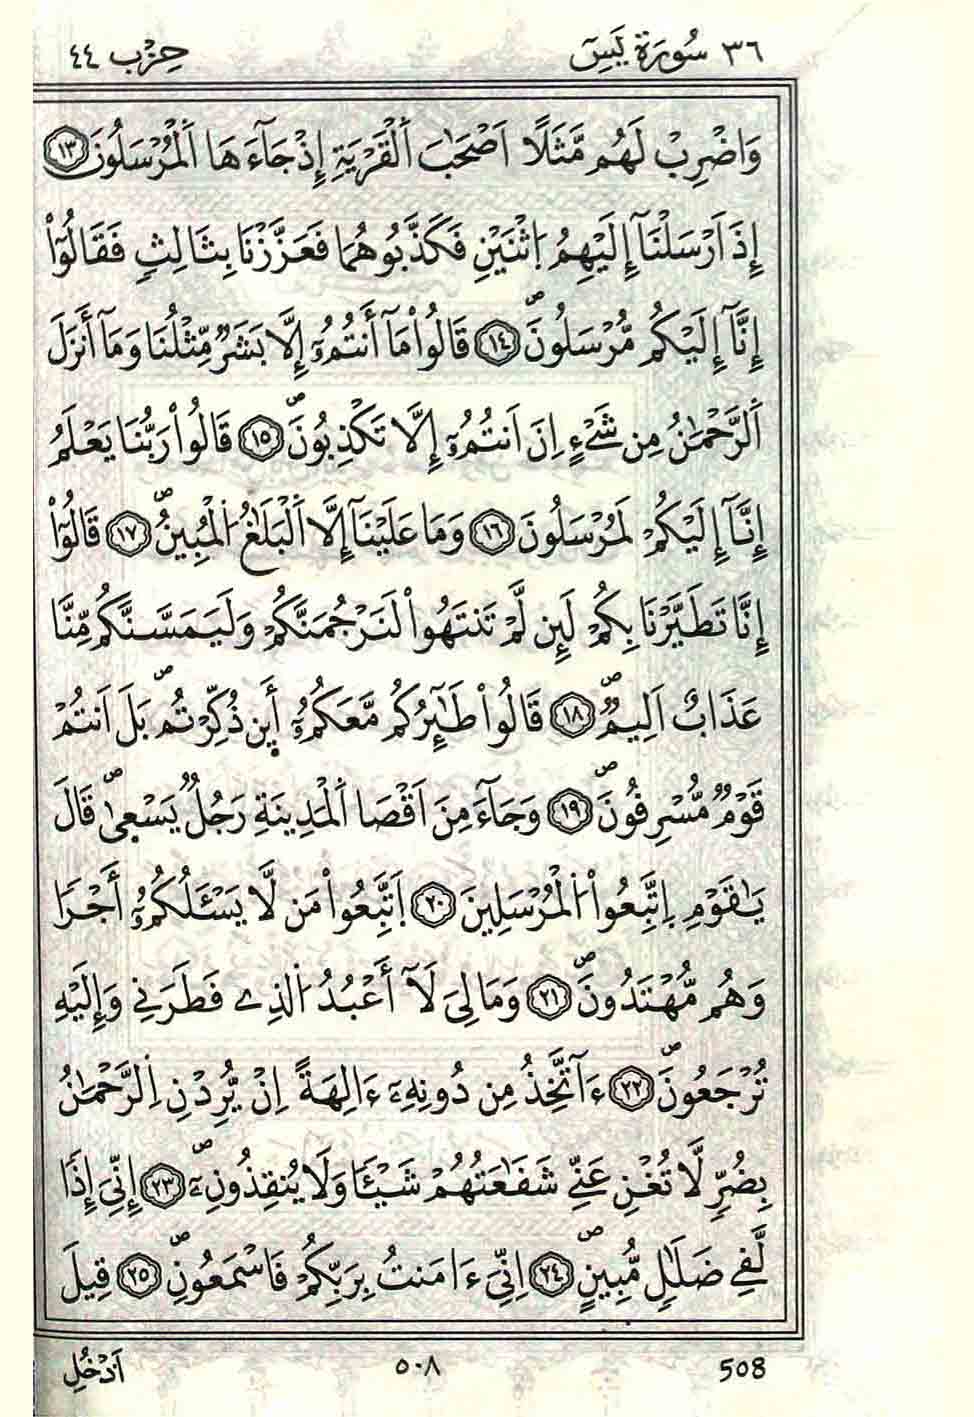 ٣٦ سُورَة يَسٓ حِزْب ٤٤
وَاضْرِبْ لَهُم مَّثَلًا اَصْحَٰبَ اَ۬لْقَرْيَةِ إِذْ جَآءَهَا اَ۬لْمُرْسَلُونَ ١٣
إِذَ اَرْسَلْنَآ إِلَيْهِمُ اِ۪ثْنَيْنِ فَكَذَّبُوهُمَا فَعَزَّزْنَا بِثَالِثٍ فَقَالُوٓاْ
إِنَّآ إِلَيْكُم مُّرْسَلُونَۖ ١٤ قَالُواْ مَآ أَنتُمُۥٓ إِلَّا بَشَرٌ مِّثْلُنَا وَمَآ أَنزَلَ
اَ۬لرَّحْمَٰنُ مِن شَےْءٍ اِنَ اَنتُمُۥٓ إِلَّا تَكْذِبُونَۖ ١٥ قَالُواْ رَبُّنَا يَعْلَمُ
إِنَّآ إِلَيْكُمْ لَمُرْسَلُونَ ١٦ وَمَا عَلَيْنَآ إِلَّا اَ۬لْبَلَٰغُ اُ۬لْمُبِينُۖ ١٧ قَالُوٓاْ
إِنَّا تَطَيَّرْنَا بِكُمْ لَئِن لَّمْ تَنتَهُواْ لَنَرْجُمَنَّكُمْ وَلَيَمَسَّنَّكُم مِّنَّا
عَذَابٌ اَلِيمٌۖ ١٨ قَالُواْ طَٰٓئِرُكُم مَّعَكُمُۥٓ أَئِن ذُكِّرْتُمۖ بَلَ اَنتُمْ
قَوْمٌ مُّسْرِفُونَۖ ١٩ وَجَآءَ مِنَ اَقْصَا اَ۬لْمَدِينَةِ رَجُلٌ يَسْع۪ىٰۖ قَالَ
يَٰقَوْمِ اِ۪تَّبِعُواْ اُ۬لْمُرْسَلِينَ ٢٠ اَ۪تَّبِعُواْ مَن لَّا يَسْـَٔلُكُمُۥٓ أَجْرًا
وَهُم مُّهْتَدُونَۖ ٢١ وَمَا لِيَ لَآ أَعْبُدُ اُ۬لذِے فَطَرَنِے وَإِلَيْهِ
تُرْجَعُونَۖ ٢٢ ءَآتَّخِذُ مِن دُونِهِۦٓ ءَالِهَةً اِنْ يُّرِدْنِ اِ۬لرَّحْمَٰنُ
بِضُرٍّ لَّا تُغْنِ عَنِّے شَفَٰعَتُهُمْ شَيْـٔاً وَلَا يُنقِذُونِۦٓۖ ٢٣ إِنِّيَ إِذًا
لَّفِے ضَلَٰلٍ مُّبِينٍۖ ٢٤ اِنِّيَ ءَامَنتُ بِرَبِّكُمْ فَاسْمَعُونِۖ ٢٥ قِيلَ
اَ۟دْخُلِ ٥٠٨ 508